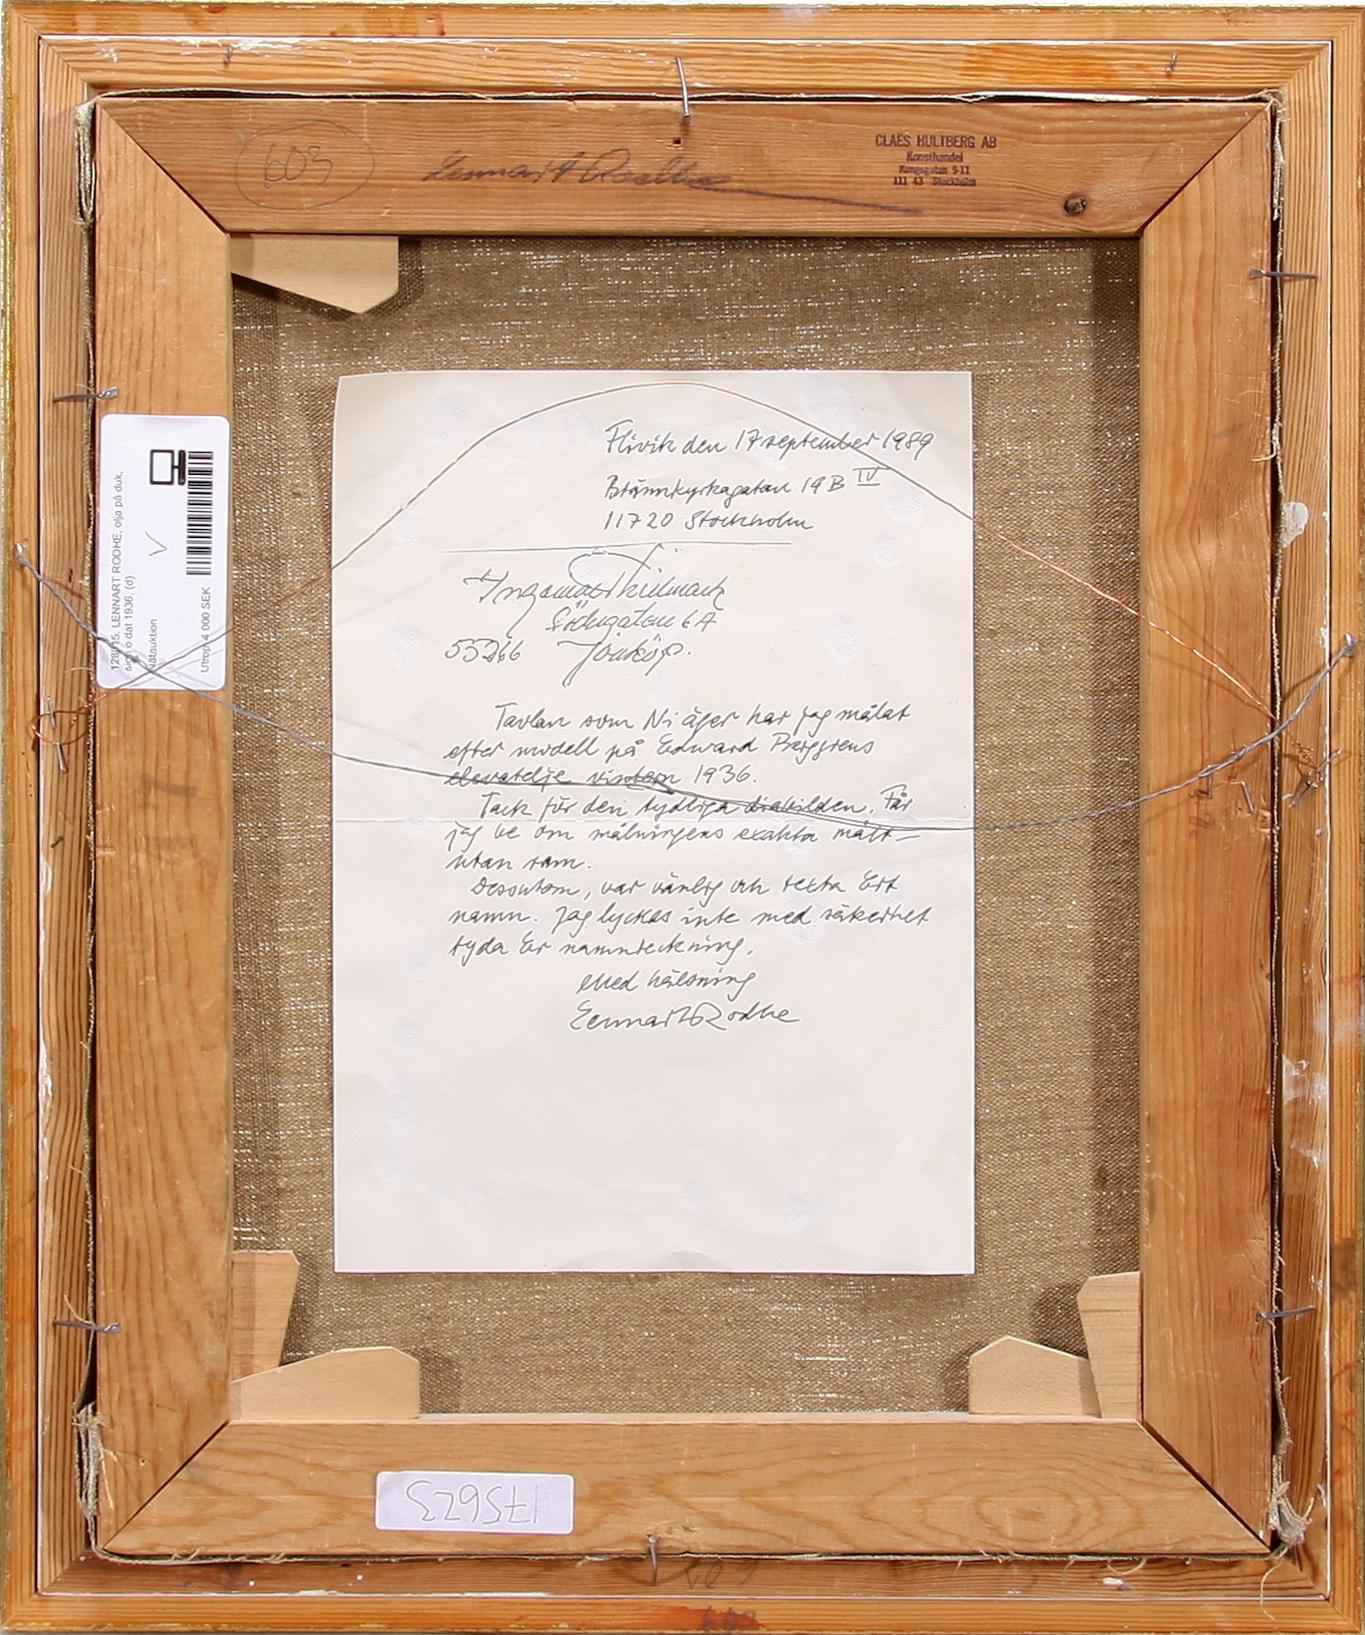 603
Lennart Rodhe
CLAES HULTBERG AB
Konsthandel
Kungsgatan 9-11
111 43 Stockholm
LENNART RODHE, olja på duk,
sign o dat 1936. (d)
Nätauktion
V
Utrop: 4 000 SEK
Flivik den 17 september 1989
Brännkyrkagatan 19B IV
11720 Stockholm
Ingemar
6A
Tavlan som Ni äger har jag målat
efter modell på Edward Berggrens
elevatelje vintern 1936.
Tack för den tydliga diabilden. Får
jag be om målningens exakta mått –
utan ram.
Dessutom, var vänlig och texta Ert
namn. Jag lyckas inte med säkerhet
tyda Er namnteckning.
Med hälsning
Lennart Rodhe
175623
603